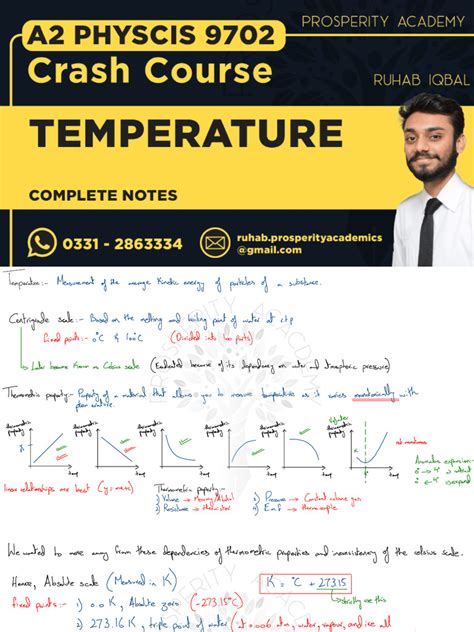 PROSPERITY ACADEMY
A2 PHYSCIS 9702
Crash Course
RUHAB IQBAL
TEMPERATURE
COMPLETE NOTES
0331 - 2863334
ruhab.prosperityacademics
@gmail.com
Temperature:- Measurement of the average Kinetic energy of particles of a substance.
Centigrade scale:- Based on the melting and boiling point of water at s.t.p
fixed points:- 0°C & 100°C (Divided into 100 parts)
Later became known as Celsius scale (Outdated because of its dependency on water and atmospheric pressure)
Thermometric property:- Property of a material that allows you to measure temperature as it varies monotonically with
temperature.
thermometric property
thermometric property
thermometric property
thermometric property
thermometric property
temp
temp
temp
temp
temp
not monotonous
Anomalous expansion:-
linear relationships are best (y=mx+c)
Thermometric property:-
1) Volume → Mercury/Alcohol
2) Resistance → thermistor
3) Pressure → Constant volume gas
4) E.m.f → thermocouple
We wanted to move away from these dependencies of thermometric properties and inconsistency of the celsius scale.
Hence, Absolute scale (Measured in K)
K = °C + 273.15
strictly use this
fixed points:- 1) 0.0 K, Absolute zero (-273.15°C)
2) 273.16 K, triple point of water (at 0.006 atm, water, vapour, and ice all